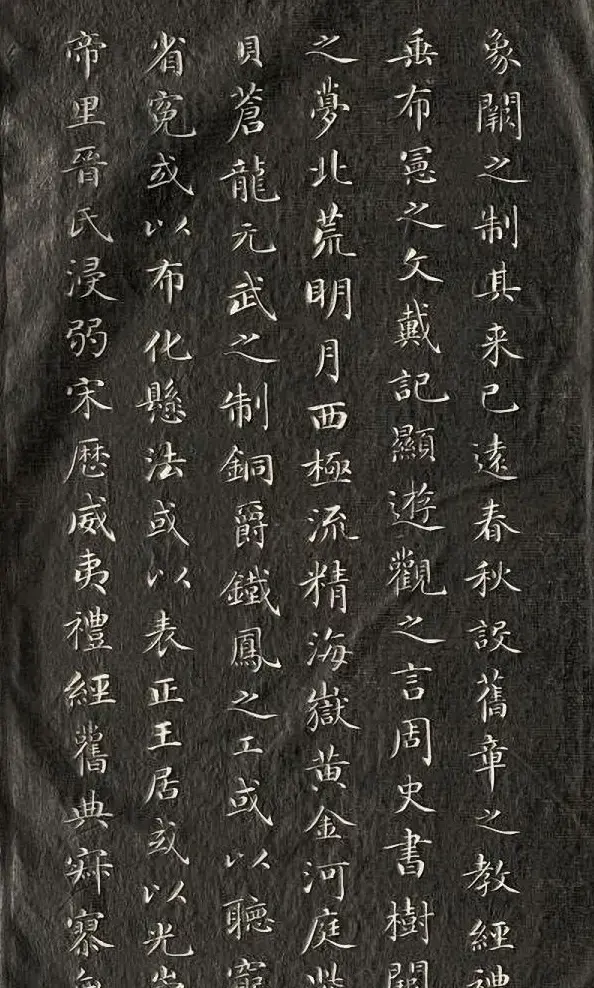 象闕之制其来已遠春秋設舊章之教經禮
垂布憲之文戴記顯遊觀之言周史書樹闕
之夢北荒明月西極流精海嶽黄金河庭紫
貝蒼龍元武之制銅爵鐵鳳之工或以聽窮
省冤或以布化懸法或以表正王居或以光
帝里晉氏浸弱宋歷威夷禮經舊典寂寥